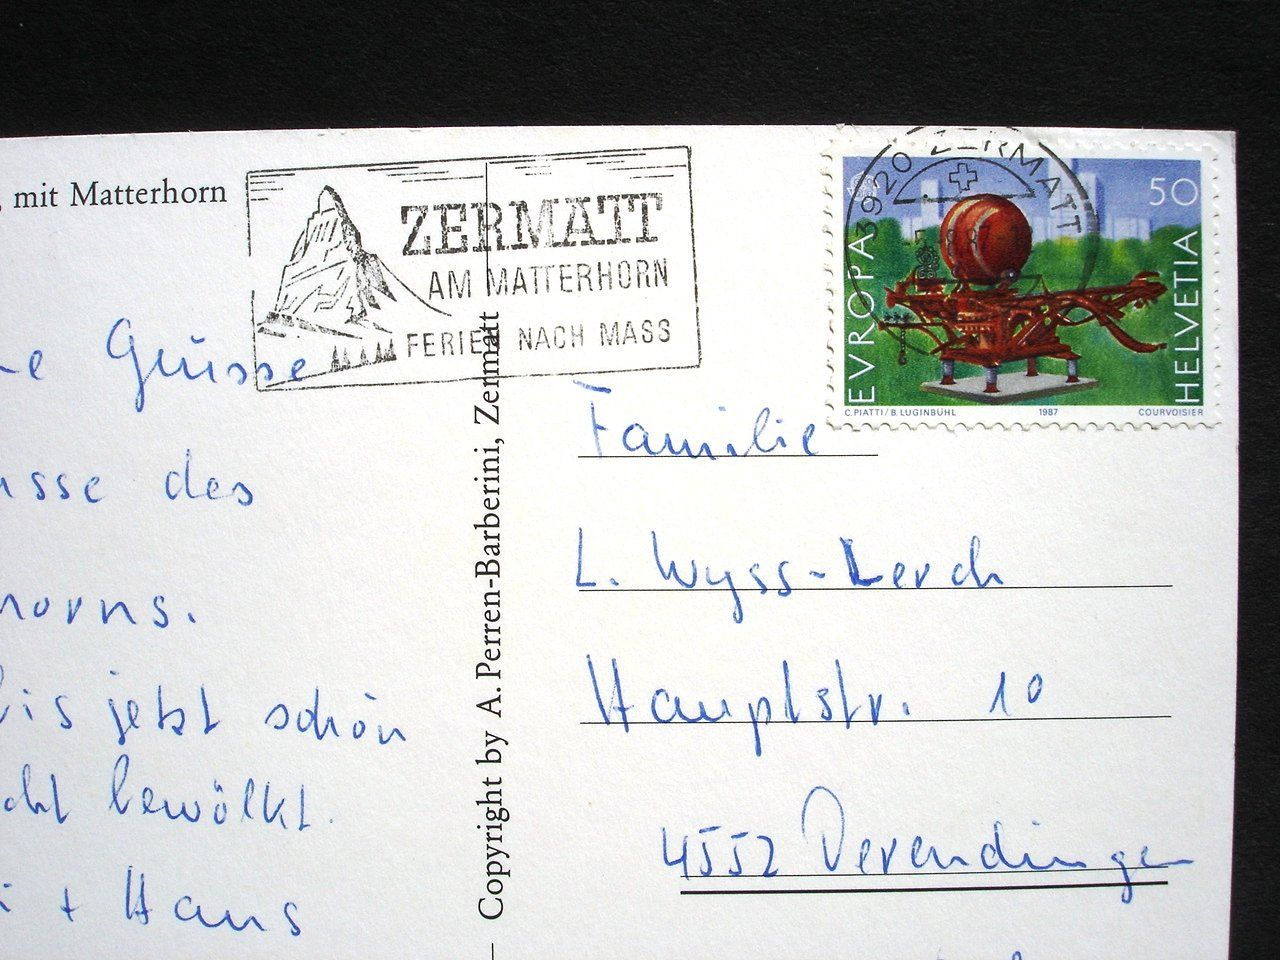 mit Matterhorn
ZERMATT
AM MATTERHORN
FERIEN NACH MASS
Grüsse
des
horns.
bis jetzt schön
bewölkt.
+ Hans
Copyright by A. Perren-Barberini, Zermatt
3920 ZERMATT
50
EVROPA
HELVETIA
C.PIATTI/B.LUGINBÜHL 1987 COURVOISIER
Familie
L. Wyss-Lerch
Hauptstr. 10
4552 Derendingen